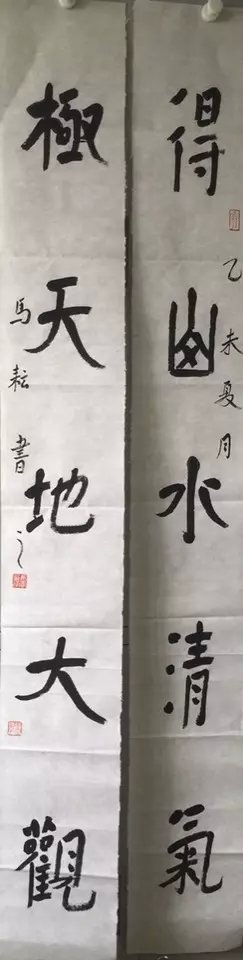 得山水清氣
乙未夏月
極天地大觀
馬耘書之